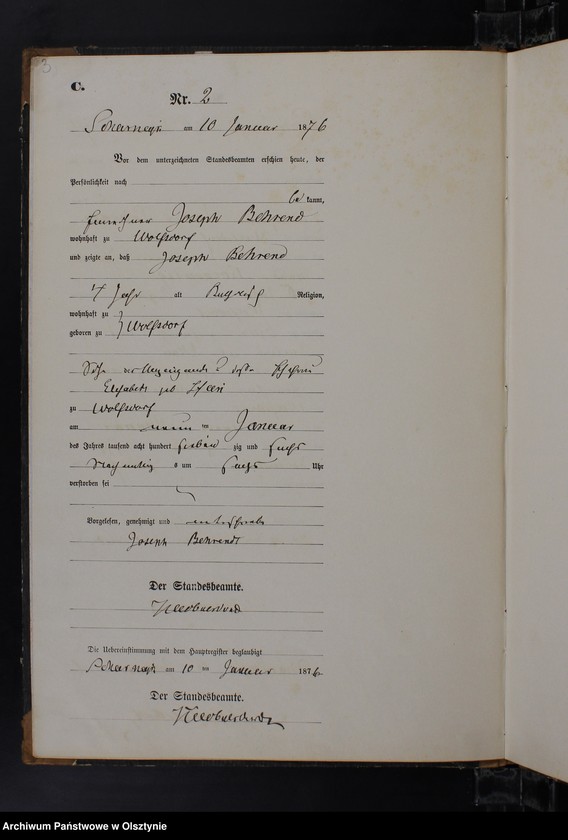 3
C.
Nr. 2
am 10 Januar 1876
Vor dem unterzeichneten Standesbeamten erschien heute, der
Persönlichkeit nach
be kannt,
Joseph Behrend
wohnhaft zu Wolfsdorf
und zeigte an, daß Joseph Behrend
4 Jahr alt Religion,
wohnhaft zu
geboren zu Wolfsdorf
Elisabeth geb
zu Wolfsdorf
am neun ten Januar
des Jahres tausend acht hundert sieben zig und sechs
Nachmittag s um sechs Uhr
verstorben sei
Vorgelesen, genehmigt und unterschrieben
Joseph Behrendt
Der Standesbeamte.
Die Uebereinstimmung mit dem Hauptregister beglaubigt
am 10 ten Januar 1876
Der Standesbeamte.
Archiwum Państwowe w Olsztynie